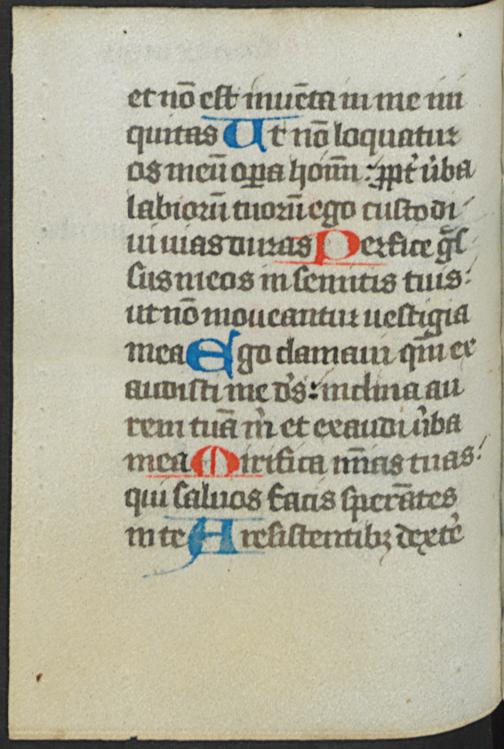 et nō est inuēta in me ini
quitas Ut nō loquatur
os meū oꝑa hoīm : ꝓpt̄ ūba
labiorū tuorū ego custodi
ui uias duras Perfice gͣs
sus meos in semitis tuis :
ut nō moueantur uestigia
mea Ego clamaui qm̄ ex
audisti me ds̄ : inclina au
rem tuā m̄ et exaudi ūba
mea Mirifica m̄ias tuas :
qui saluos facis sperātes
in te A resistentibꝫ dexte᷑